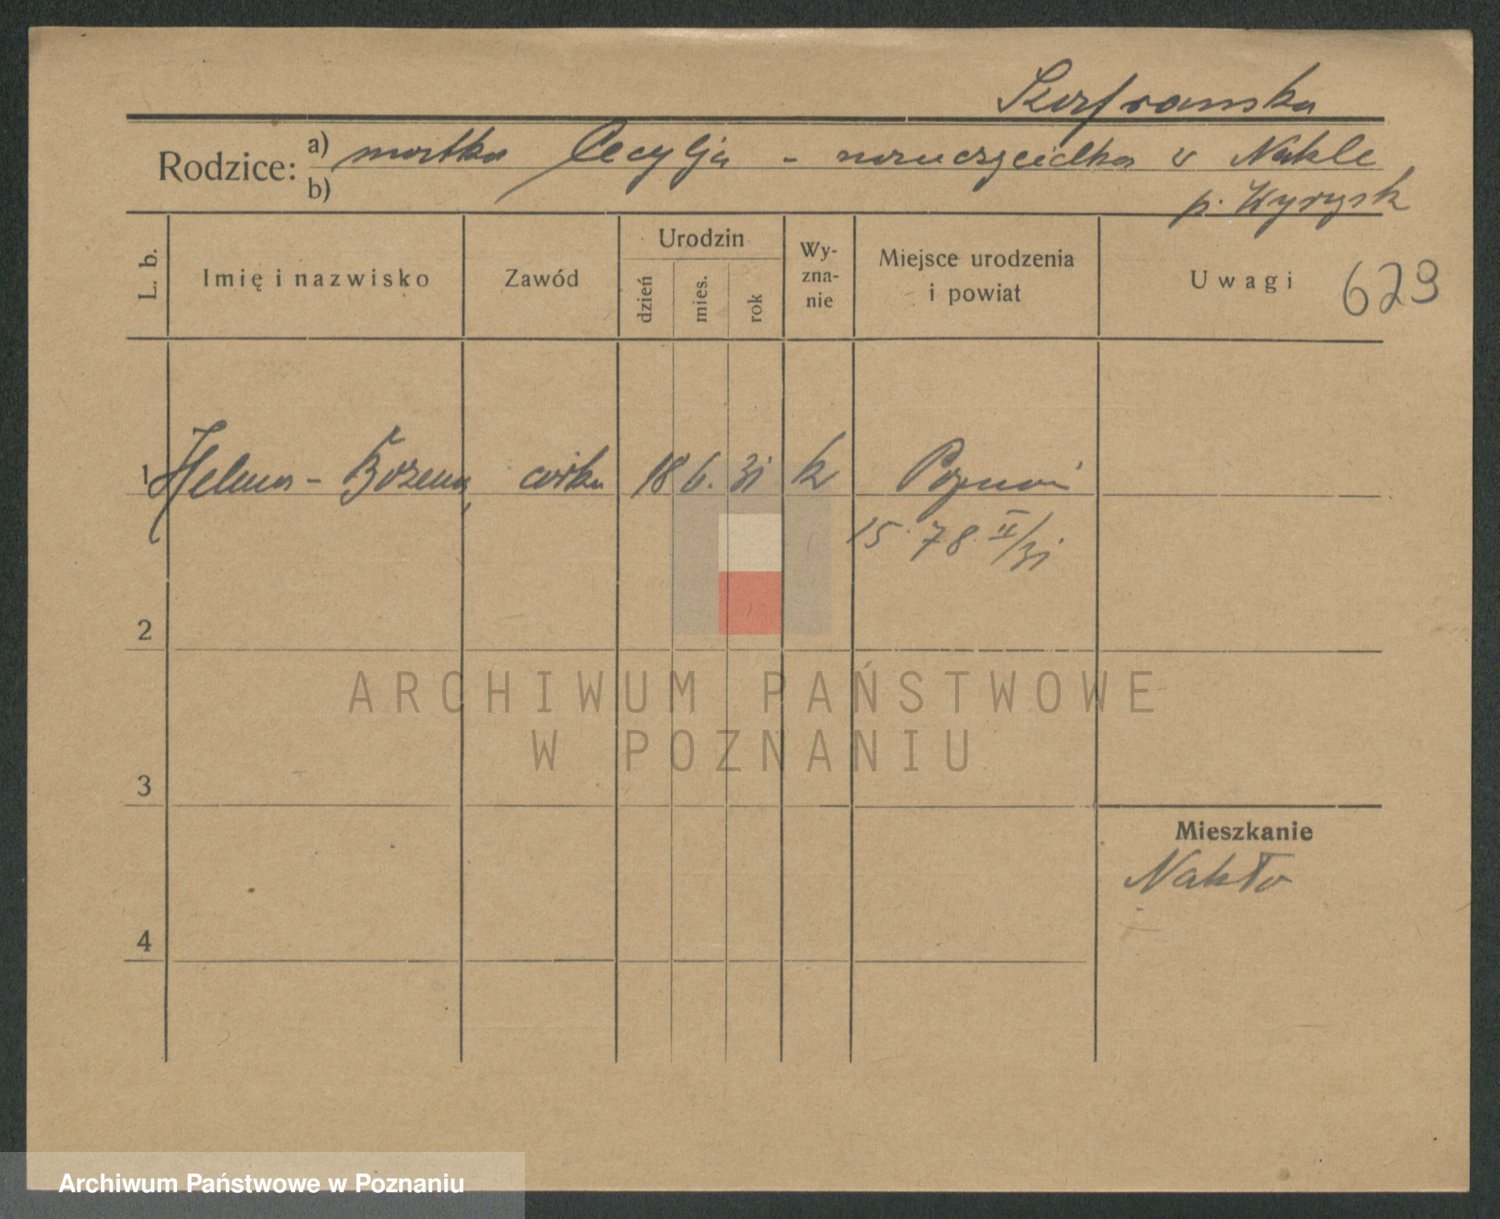 Szafrańska
Rodzice: a) matka Cecylja - nauczycielka w Nakle
b) p. Wyrzysk
L. b. Imię i nazwisko Zawód Urodzin dzień mies. rok Wy-zna-nie Miejsce urodzenia i powiat Uwagi 629
1 Helena - Bożena córka 18 6. 31 k Poznań
15. 78 II/31
2
ARCHIWUM PAŃSTWOWE
W POZNANIU
3
Mieszkanie
Nakło
4
Archiwum Państwowe w Poznaniu